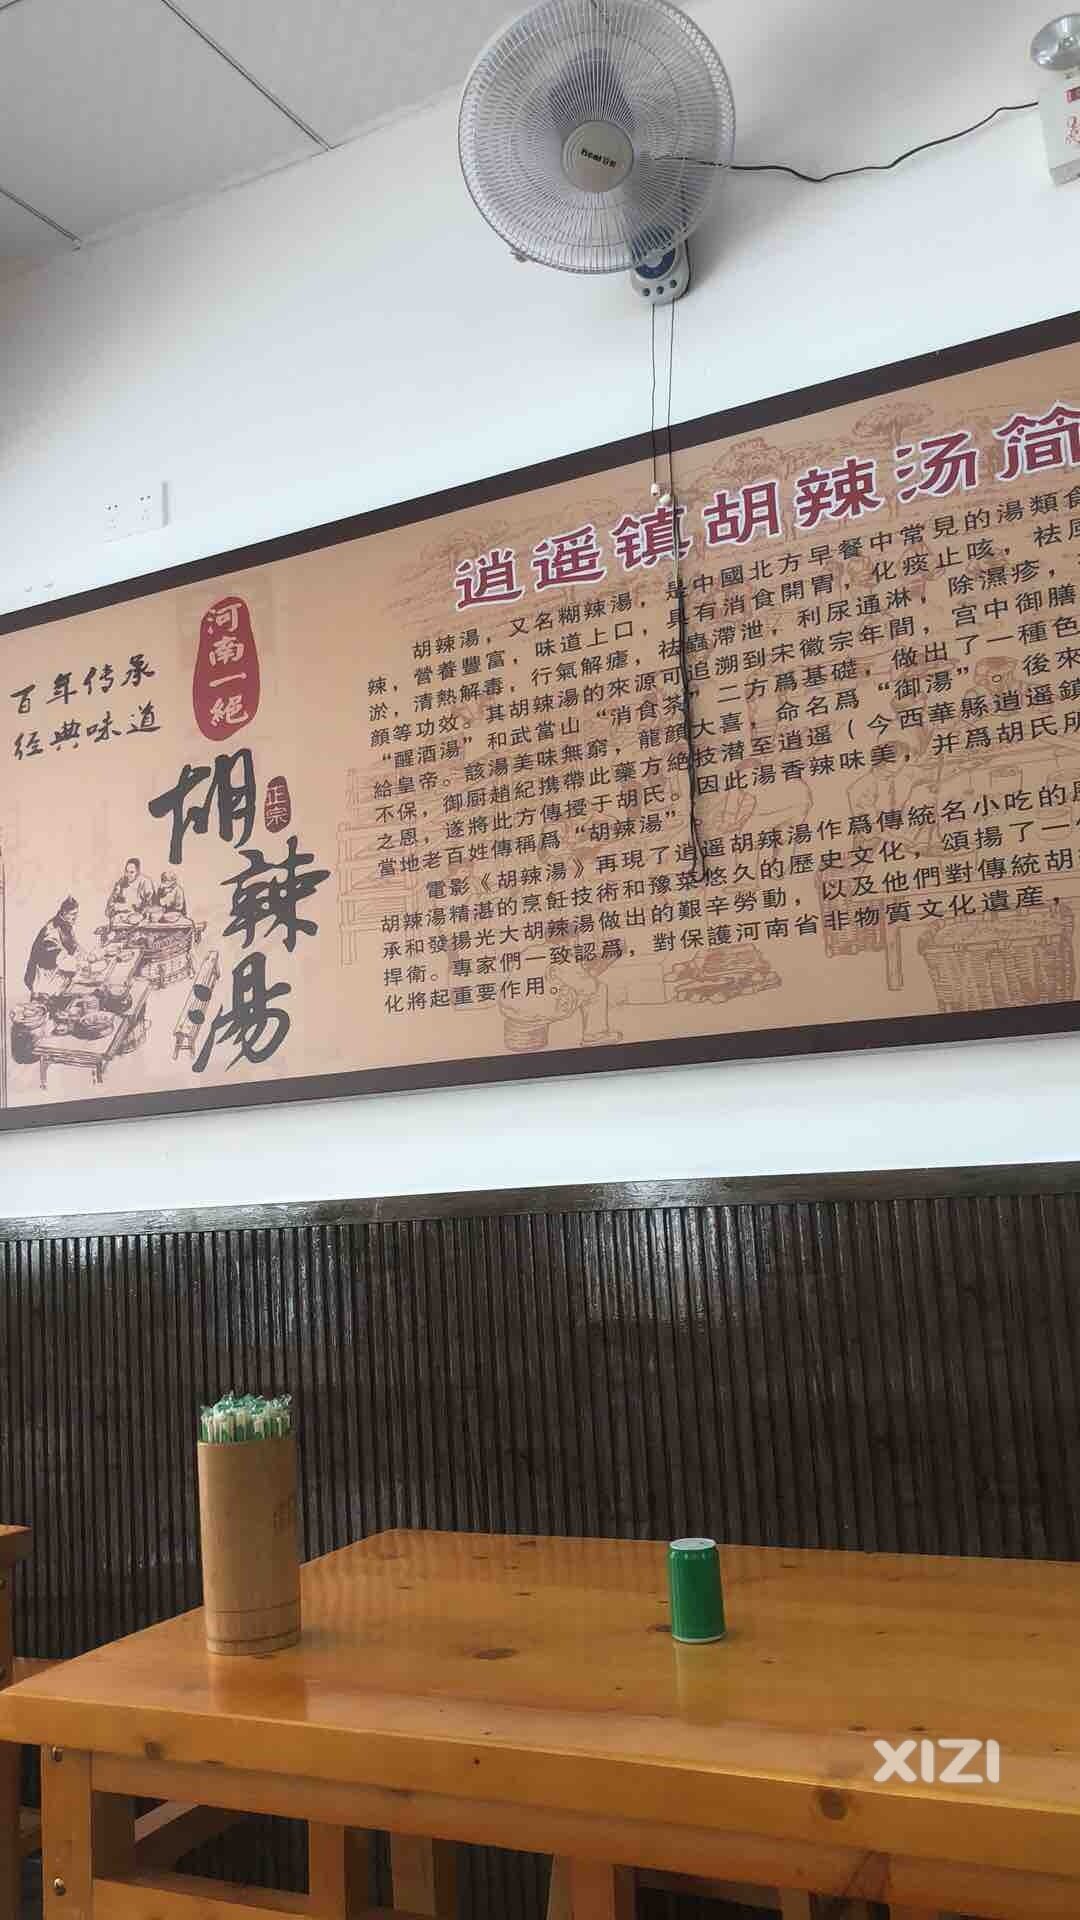 逍遥镇胡辣汤简
百年传承
经典味道
河南一絕
胡辣湯
正宗
胡辣湯，又名糊辣湯，是中國北方早餐中常見的湯類食
辣，營養豐富，味道上口，具有消食開胃，化痰止咳，祛風
淤，清熱解毒，行氣解瘧，祛蟲滯泄，利尿通淋，除濕疹，
顏等功效。其胡辣湯的來源可追溯到宋徽宗年間，宮中御膳
“醒酒湯”和武當山“消食茶”二方爲基礎，做出了一種色
給皇帝。該湯美味無窮，龍顏大喜，命名爲“御湯”。後來
不保，御厨趙紀携帶此藥方絕技潜至逍遥（今西華縣逍遥鎮
之恩，遂將此方傳授于胡氏。因此湯香辣味美，并爲胡氏所
當地老百姓傳稱爲“胡辣湯”
電影《胡辣湯》再現了逍遥胡辣湯作爲傳統名小吃的歷
胡辣湯精湛的烹飪技術和豫菜悠久的歷史文化，頌揚了一
承和發揚光大胡辣湯做出的艱辛勞動，以及他們對傳統胡
捍衛。專家們一致認爲，對保護河南省非物質文化遺産，
化將起重要作用。
XIZI